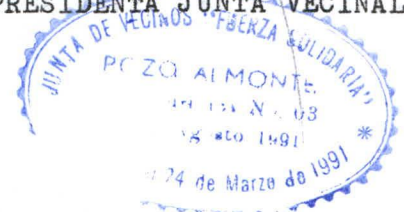 PRESIDENTA JUNTA VECINAL
JUNTA DE VECINOS "FUERZA SOLIDARIA"
POZO ALMONTE
Nº 03
1991
24 de Marzo de 1991
*